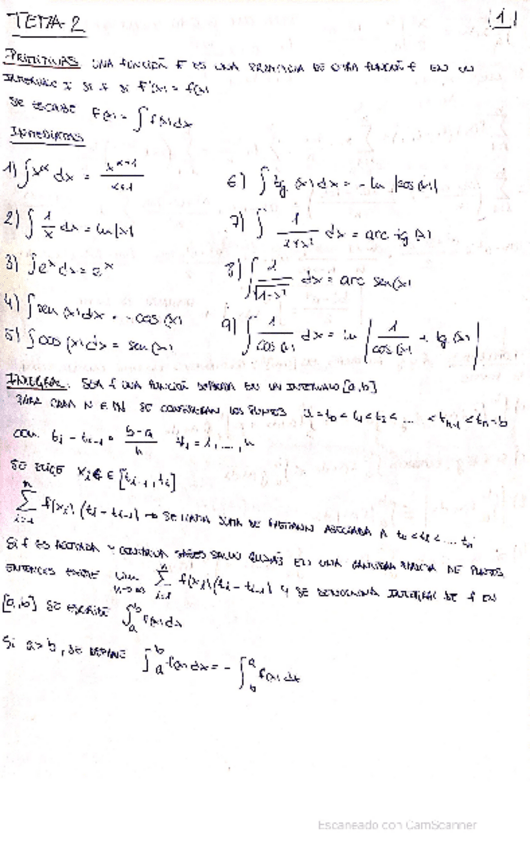 TEMA 2
1
PRIMITIVAS UNA FUNCIÓN F ES UNA PRIMITIVA DE OTRA FUNCIÓN f EN UN
INTERVALO I SI F'(x) = f(x)
SE ESCRIBE F(x) = ∫ f(x) dx
INMEDIATAS
1) ∫ x^α dx = x^(α+1) / (α+1)
2) ∫ 1/x dx = ln|x|
3) ∫ e^x dx = e^x
4) ∫ sen(x) dx = -cos(x)
5) ∫ cos(x) dx = sen(x)
6) ∫ tg(x) dx = -ln|cos(x)|
7) ∫ 1/(1+x²) dx = arc tg(x)
8) ∫ 1/√(1-x²) dx = arc sen(x)
9) ∫ 1/cos(x) dx = ln |1/cos(x) + tg(x)|
INTEGRAL. SEA f UNA FUNCIÓN DEFINIDA EN UN INTERVALO [a,b]
PARA CADA N ∈ ℕ SE CONSIDERAN LOS PUNTOS a = t₀ < t₁ < t₂ < ... < tₙ₋₁ < tₙ = b
CON tᵢ - tᵢ₋₁ = (b-a)/n ∀i = 1, ..., n
SE ELIGE xᵢ ∈ [tᵢ₋₁, tᵢ]
∑ᵢ₌₁ⁿ f(xᵢ) (tᵢ - tᵢ₋₁) → SE LLAMA SUMA DE RIEMANN ASOCIADA A t₀ < t₁ < ... tₙ
Si f ES ACOTADA Y CONTINUA SALVO QUIZÁS EN UNA CANTIDAD FINITA DE PUNTOS
ENTONCES EXISTE lim n→∞ ∑ᵢ₌₁ⁿ f(xᵢ) (tᵢ - tᵢ₋₁) Y SE DENOMINA INTEGRAL DE f EN
[a,b] SE ESCRIBE ∫ₐᵇ f(x) dx
Si a > b, SE DEFINE ∫ₐᵇ f(x) dx = - ∫_b^a f(x) dx
Escaneado con CamScanner